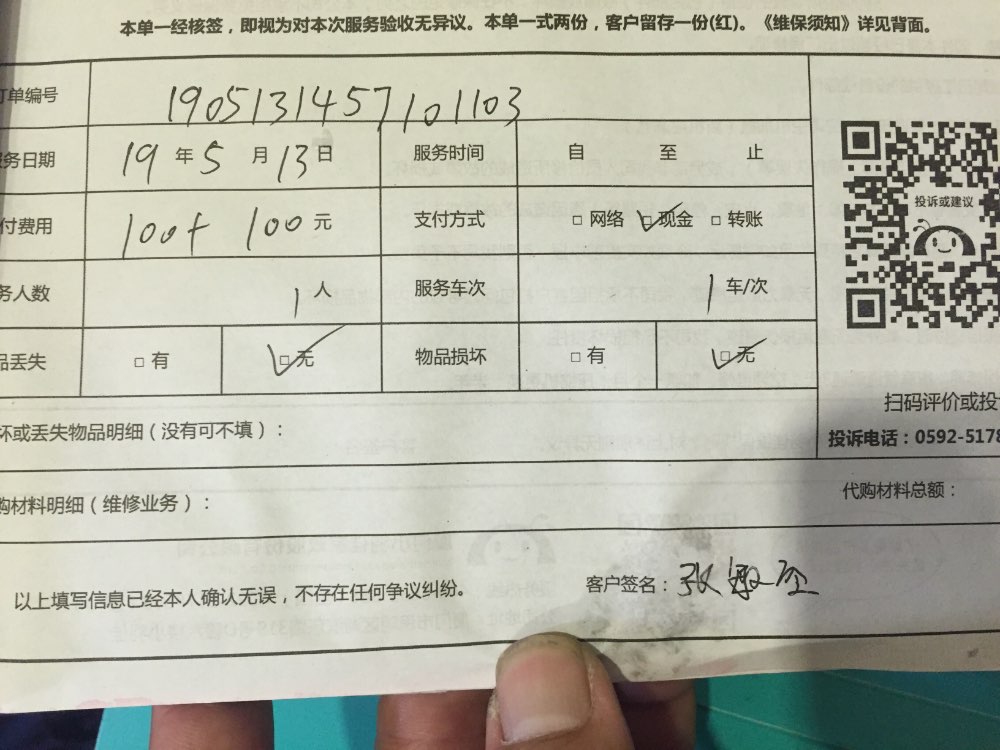 本单一经核签，即视为对本次服务验收无异议。本单一式两份，客户留存一份(红)。《维保须知》详见背面。
订单编号 1905131457101103
服务日期 19 年 5 月 13 日 服务时间 自 至 止
付费用 100+ 100 元 支付方式 □ 网络 □ 现金 □ 转账
务人数 1 服务车次 1 车/次
品丢失 □ 有 □ 无 物品损坏 □ 有 □ 无
投诉或建议
扫码评价或投
投诉电话：0592-5178
坏或丢失物品明细（没有可不填）：
购材料明细（维修业务）： 代购材料总额：
以上填写信息已经本人确认无误，不存在任何争议纠纷。 客户签名：张